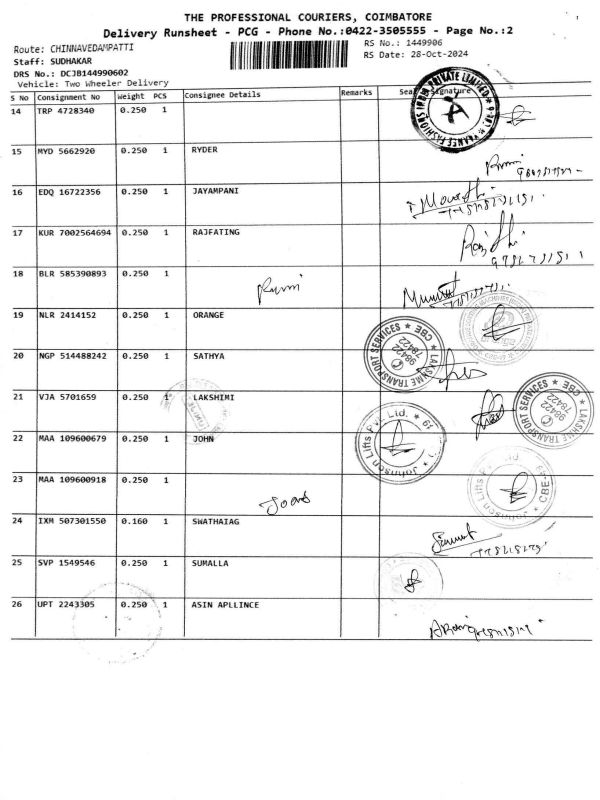 THE PROFESSIONAL COURIERS, COIMBATORE
Delivery Runsheet - PCG - Phone No.:0422-3505555 - Page No.:2
Route: CHINNAVEDAMPATTI
RS No.: 1449906
Staff: SUDHAKAR
RS Date: 28-Oct-2024
DRS No.: DCJB144990602
Vehicle: Two Wheeler Delivery
S No Consignment No Weight PCS Consignee Details Remarks Seal Signature
14 TRP 4728340 0.250 1
15 MYD 5662920 0.250 1 RYDER
16 EDQ 16722356 0.250 1 JAYAMPANI
17 KUR 7002564694 0.250 1 RAJFATING
18 BLR 585390893 0.250 1
19 NLR 2414152 0.250 1 ORANGE
20 NGP 514488242 0.250 1 SATHYA
LAKSHME TRANSPORT SERVICES * CBE *
98422
78422
21 VJA 5701659 0.250 1 LAKSHIMI
LAKSHME TRANSPORT SERVICES * CBE *
98422
78422
22 MAA 109600679 0.250 1 JOHN
Johnson Lifts Pvt. Ltd.
23 MAA 109600918 0.250 1
Johnson Lifts Ltd. CBE
24 IXM 507301550 0.160 1 SWATHAIAG
25 SVP 1549546 0.250 1 SUMALLA
26 UPT 2243305 0.250 1 ASIN APLLINCE